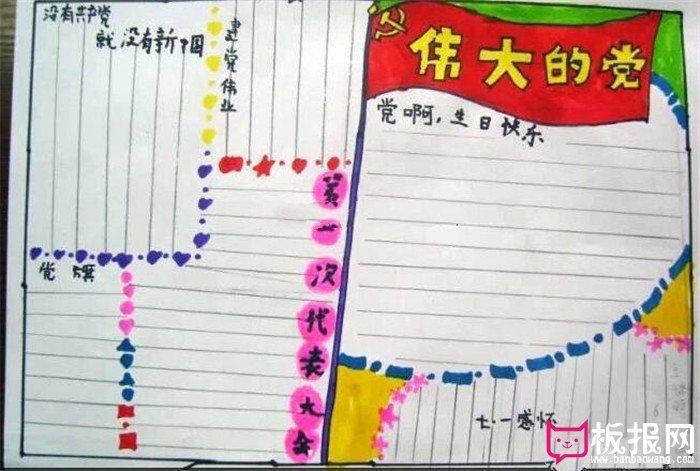 没有共产党
就没有新中国
建党伟业
伟大的党
党啊,生日快乐
党旗
第一次代表大会
七·一感怀
板报网
www.banbaowang.com